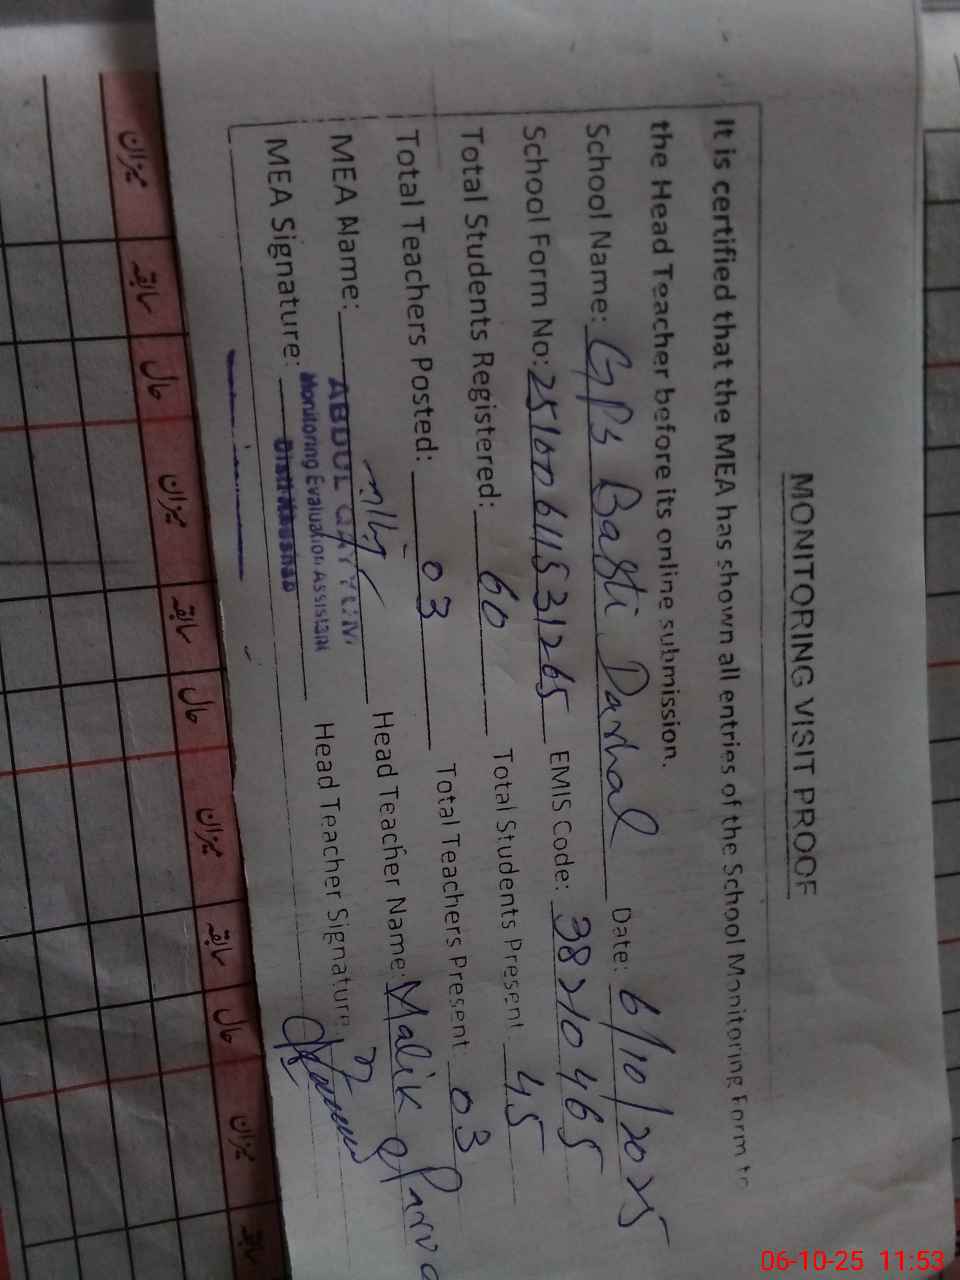 MONITORING VISIT PROOF
It is certified that the MEA has shown all entries of the School Monitoring Form to
the Head Teacher before its online submission.
School Name: GPS Basti Darkhal Date: 6/10/2025
School Form No: EMIS Code: 38210465
Total Students Registered: 60 Total Students Present 45
Total Teachers Posted: 03 Total Teachers Present 03
MEA Name: ABDUL QAYYUM Head Teacher Name: Malik
Monitoring Evaluation Assistant
MEA Signature: Head Teacher Signature
میزان سابقہ حال میزان سابقہ حال میزان سابقہ حال میزان سابقہ
06-10-25 11:53